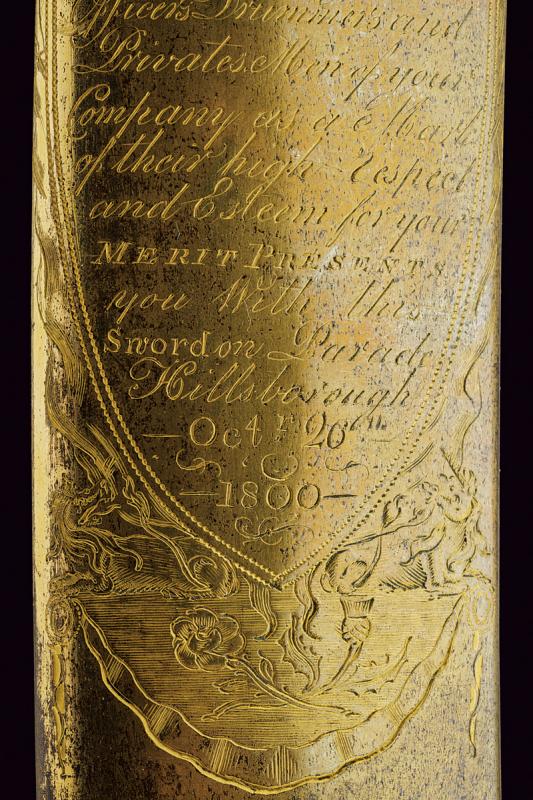 Officers Drummers and
Privates Men of your
Company as a Mark
of their high Respect
and Esteem for your
MERIT PRESENTS
you With this
Sword on Parade
Hillsborough
—Octr 20th—
—1800—